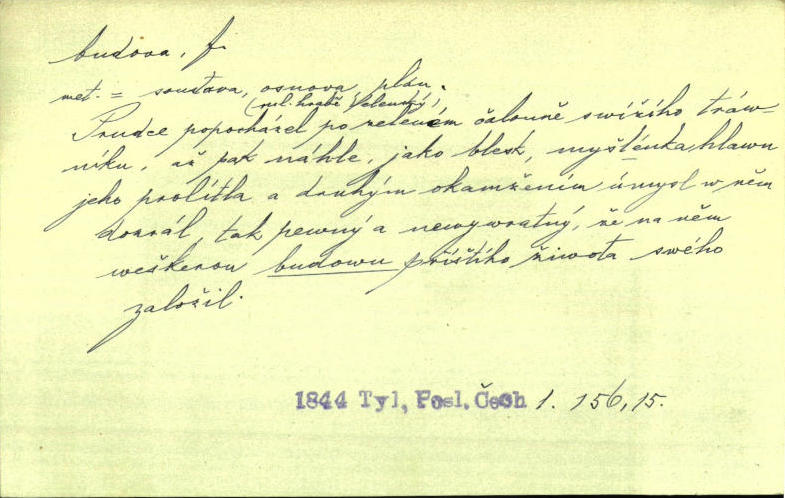 budova, f.
met. = soustava, osnova, plán.
(ml. hrabě Jelenský)
Prudce popocházel po zeleném čalouně swižího tráw-
níku, až pak náhle, jako blesk, myšlénka hlawu
jeho prolítla a druhým okamžením úmysl w něm
dozrál, tak pewný a newywratný, že na něm
weškerou budowu příštího žiwota swého
založil.
1844 Tyl, Posl. Čech 1. 156, 15.